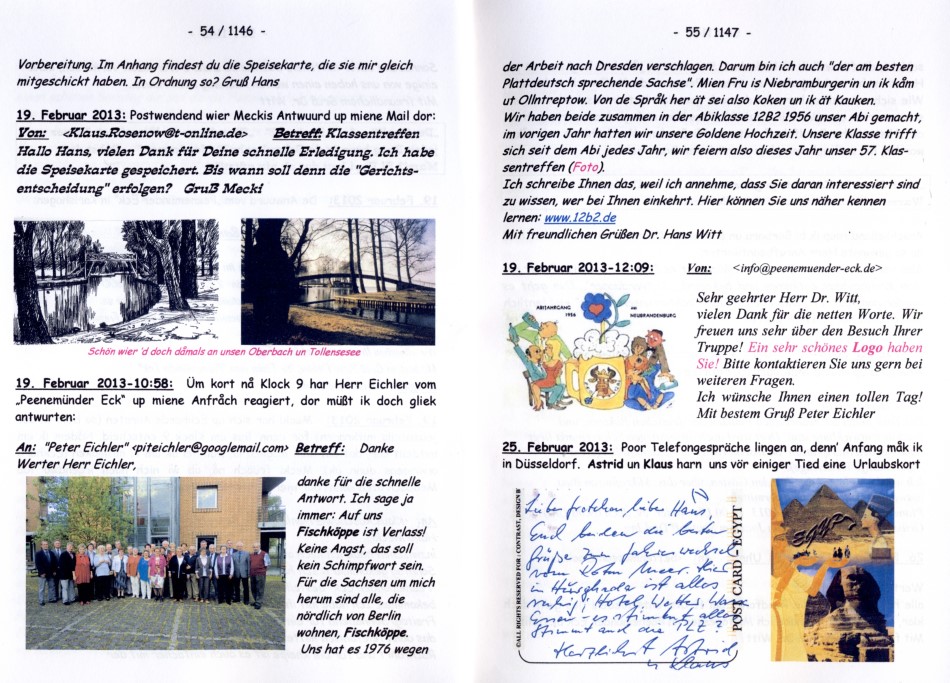 - 54 / 1146 -
Vorbereitung. Im Anhang findest du die Speisekarte, die sie mir gleich
mitgeschickt haben. In Ordnung so? Gruß Hans
19. Februar 2013: Postwendend wier Meckis Antwuurd up miene Mail dor:
Von: <Klaus.Rosenow@t-online.de> Betreff: Klassentreffen
Hallo Hans, vielen Dank für Deine schnelle Erledigung. Ich habe
die Speisekarte gespeichert. Bis wann soll denn die "Gerichts-
entscheidung" erfolgen? Gruß Mecki
Schön wier 'd doch dåmals an unsen Oberbach un Tollensesee
19. Februar 2013-10:58: Üm kort nå Klock 9 har Herr Eichler vom
„Peenemünder Eck" up miene Anfråch reagiert, dor müßt ik doch gliek
antwurten:
An: "Peter Eichler" <piteichler@googlemail.com> Betreff: Danke
Werter Herr Eichler,
danke für die schnelle
Antwort. Ich sage ja
immer: Auf uns
Fischköppe ist Verlass!
Keine Angst, das soll
kein Schimpfwort sein.
Für die Sachsen um mich
herum sind alle, die
nördlich von Berlin
wohnen, Fischköppe.
Uns hat es 1976 wegen
- 55 / 1147 -
der Arbeit nach Dresden verschlagen. Darum bin ich auch "der am besten
Plattdeutsch sprechende Sachse". Mien Fru is Niebramburgerin un ik kåm
ut Ollntreptow. Von de Språk her ät sei also Koken un ik ät Kauken.
Wir haben beide zusammen in der Abiklasse 12B2 1956 unser Abi gemacht,
im vorigen Jahr hatten wir unsere Goldene Hochzeit. Unsere Klasse trifft
sich seit dem Abi jedes Jahr, wir feiern also dieses Jahr unser 57. Klas-
sentreffen (Foto).
Ich schreibe Ihnen das, weil ich annehme, dass Sie daran interessiert sind
zu wissen, wer bei Ihnen einkehrt. Hier können Sie uns näher kennen
lernen: www.12b2.de
Mit freundlichen Grüßen Dr. Hans Witt
19. Februar 2013-12:09: Von: <info@peenemuender-eck.de>
ABITJAHRGANG
1956
NEUBRANDENBURG
Sehr geehrter Herr Dr. Witt,
vielen Dank für die netten Worte. Wir
freuen uns sehr über den Besuch Ihrer
Truppe! Ein sehr schönes Logo haben
Sie! Bitte kontaktieren Sie uns gern bei
weiteren Fragen.
Ich wünsche Ihnen einen tollen Tag!
Mit bestem Gruß Peter Eichler
25. Februar 2013: Poor Telefongespräche lingen an, denn' Anfang måk ik
in Düsseldorf. Astrid un Klaus harn uns vör einiger Tied eine Urlaubskort
©ALL RIGHTS RESERVED FOR : CONTRAST, DESIGN
POST CARD - EGYPT
lieber Hans,
Euch beiden die besten
Grüße zum Jahreswechsel
vom Roten Meer. Hier
in Hurghada ist alles
ruhig! Hotel, Wetter,
Essen - es stimmt alles
Stimmt auch die PLZ?
Herzlichst Astrid
u. Klaus
EGYPT